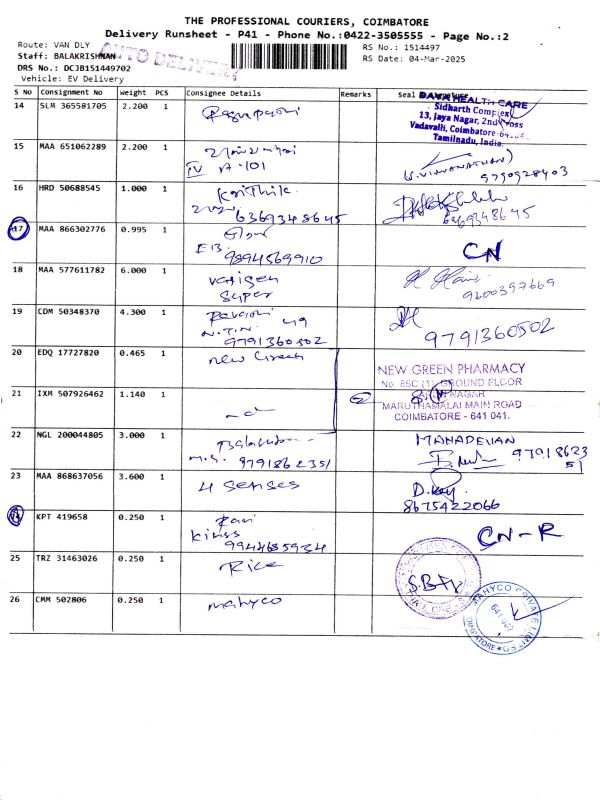 THE PROFESSIONAL COURIERS, COIMBATORE
Delivery Runsheet - P41 - Phone No.:0422-3505555 - Page No.:2
Route: VAN DLY
Staff: BALAKRISHNAN
DRS No.: DCJB151449702
Vehicle: EV Delivery
AUTO DELIVERY
RS No.: 1514497
RS Date: 04-Mar-2025
S No Consignment No Weight PCS Consignee Details Remarks Seal
14 SLM 365581705 2.200 1
DATA HEALTH CARE
Sidharth Complex
13, Jaya Nagar, 2nd Cross
Vadavalli, Coimbatore
Tamilnadu, India.
15 MAA 651062289 2.200 1
IV A-101
(S.VISWANATHAN)
9790928403
16 HRD 50688545 1.000 1 Karthik
6369348645
6369348645
17 MAA 866302776 0.995 1
EB
9894569910
CN
18 MAA 577611782 6.000 1
Super
9200397669
19 CDM 50348370 4.300 1
N.T.N. 49
9791360502
9791360502
20 EDQ 17727820 0.465 1 new Green
NEW GREEN PHARMACY
No. 85C (1), GROUND FLOOR
NAGAR
MARUTHAMALAI MAIN ROAD
COIMBATORE - 641 041.
21 IXM 507926462 1.140 1
22 NGL 200044805 3.000 1
M.S. 9791862351
MAHADEVAN
9791862351
23 MAA 868637056 3.600 1 4 Senses
8675422066
24 KPT 419658 0.250 1 Ravi
Kings
9944685934
CN-R
25 TRZ 31463026 0.250 1 Rice
26 CMM 502806 0.250 1 mahyco
MAHYCO PRIVATE LIMITED
COIMBATORE